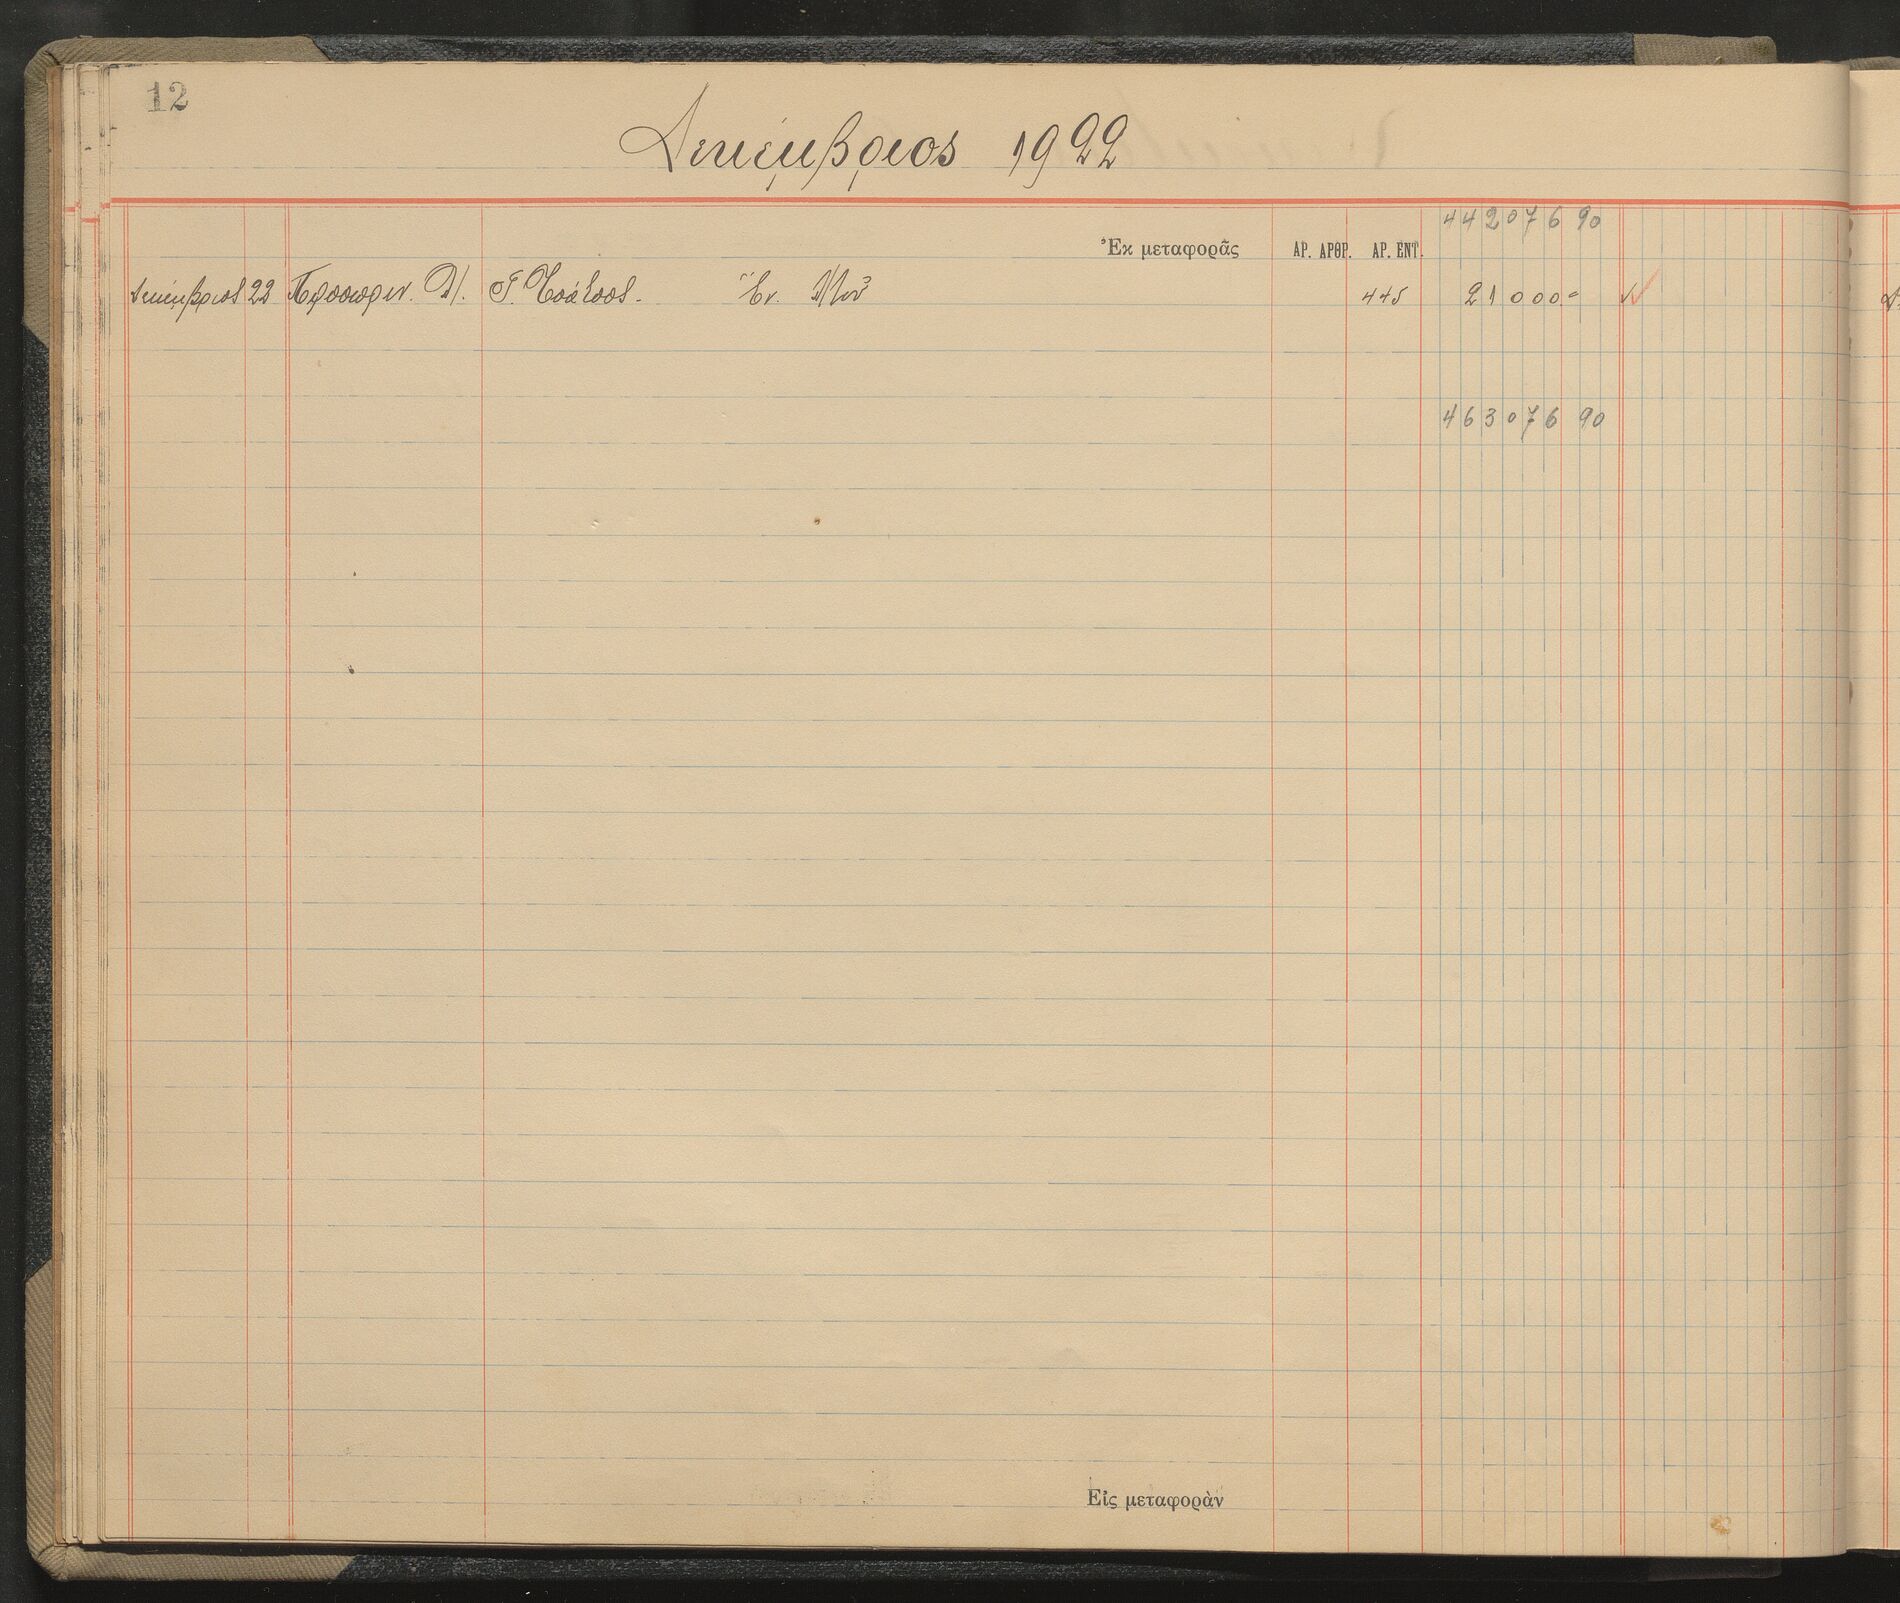 12
Δεκέμβριος 1922
442076 90
Ἐκ μεταφορᾶς ΑΡ. ΑΡΘΡ. ΑΡ. ΕΝΤ.
Δεκέμβριος 22 Προσωριν. Λ/. Γ. Τσάτσος. Ἐν. Λ/σοῦ 445 21000.-
463076 90
Εἰς μεταφορὰν